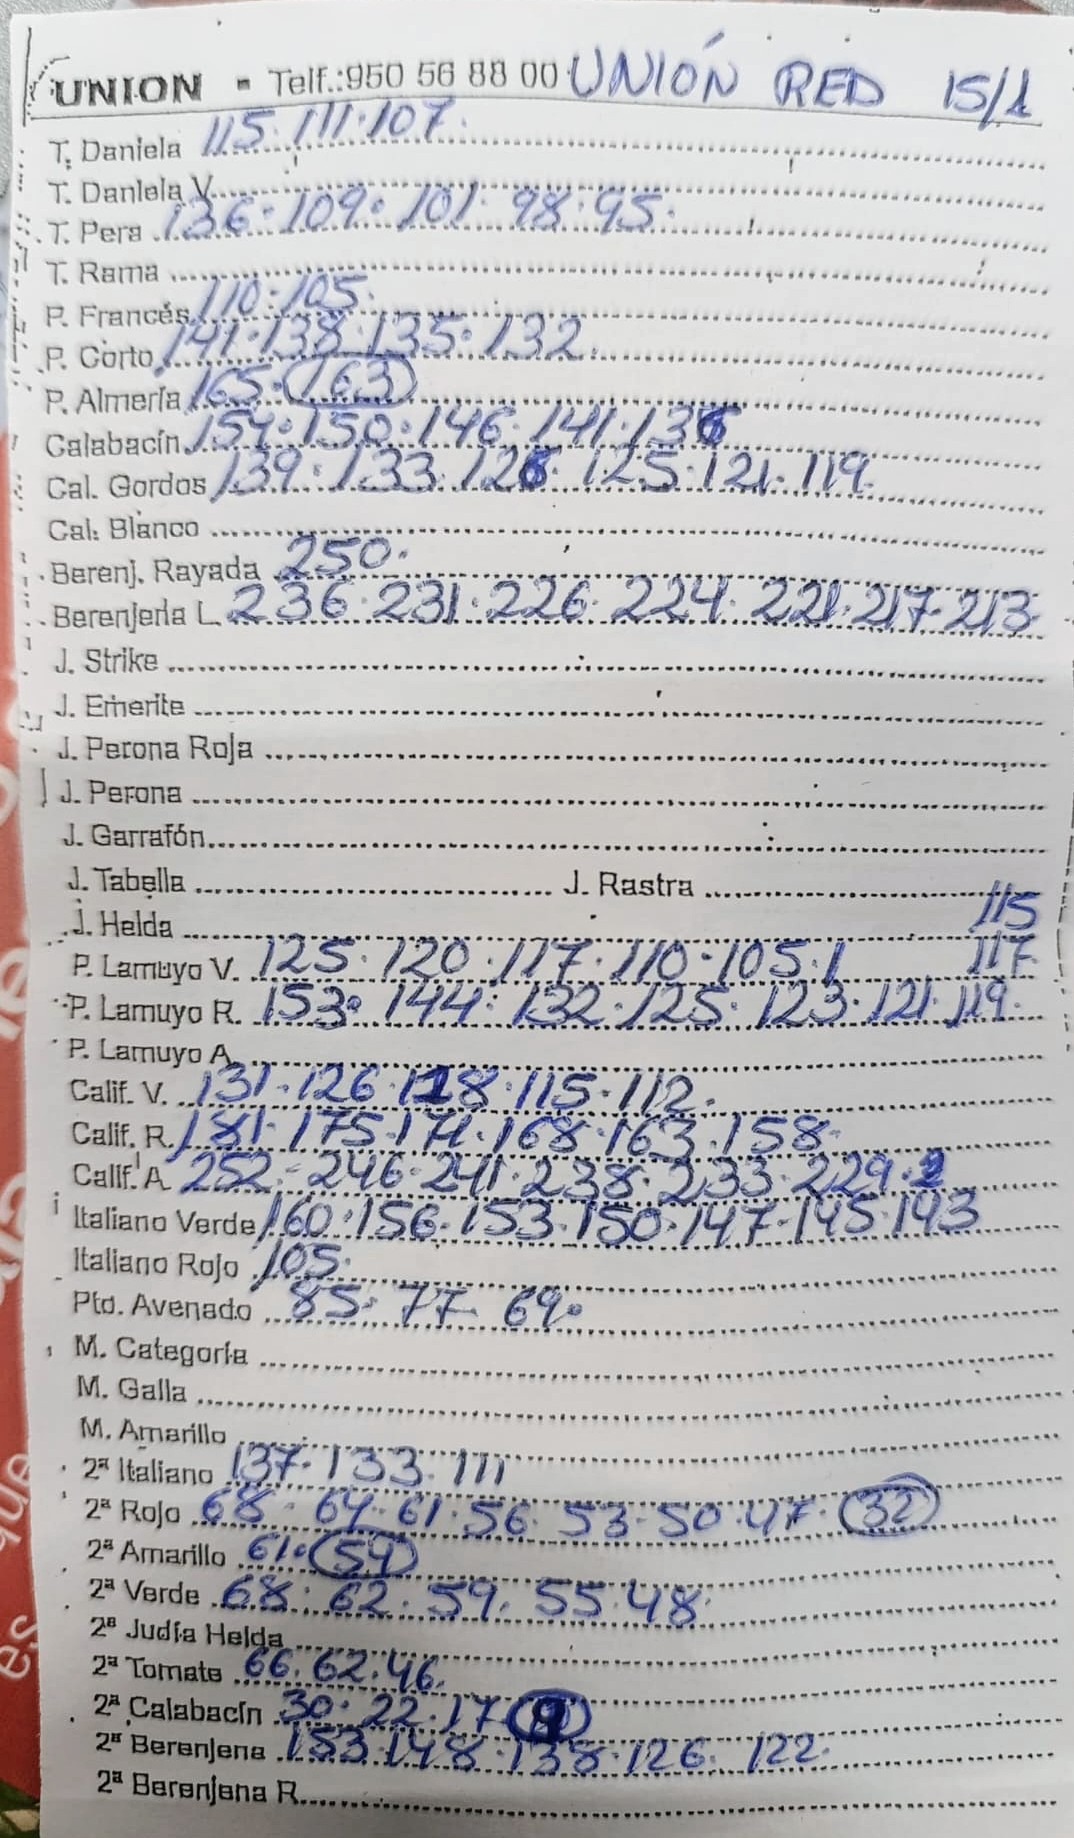 UNION - Telf.:950 56 88 00 UNIÓN RED 15/1
T. Daniela 115·111·107·
T. Daniela V.
T. Pera 136·109·101·98·95·
T. Rama
P. Francés 110·105·
P. Corto 141·138·135·132
P. Almería 165·163
Calabacín 154·150·146·141·136
Cal. Gordos 139·133·126·125·121·119
Cal. Blanco
Berenj. Rayada 250·
Berenjena L. 236·231·226·224·221·217·213
J. Strike
J. Emerite
J. Perona Roja
J. Perona
J. Garrafón
J. Tabella J. Rastra
J. Helda 115
P. Lamuyo V. 125·120·117·110·105·1 117
P. Lamuyo R. 153·144·132·125·123·121·119·
P. Lamuyo A.
Calif. V. 131·126·118·115·112·
Calif. R. 181·175·171·168·163·158·
Calif. A. 252·246·241·238·233·229·2
Italiano Verde 160·156·153·150·147·145·143
Italiano Rojo 105·
Pto. Avenado 85·77·69·
M. Categoría
M. Galia
M. Amarillo
2ª Italiano 137·133·111
2ª Rojo 68·64·61·56·53·50·47·32
2ª Amarillo 61·54
2ª Verde 68·62·59·55·48·
2ª Judía Helda
2ª Tomate 66·62·46·
2ª Calabacín 30·22·17
2ª Berenjena 153·148·138·126·122·
2ª Berenjena R.